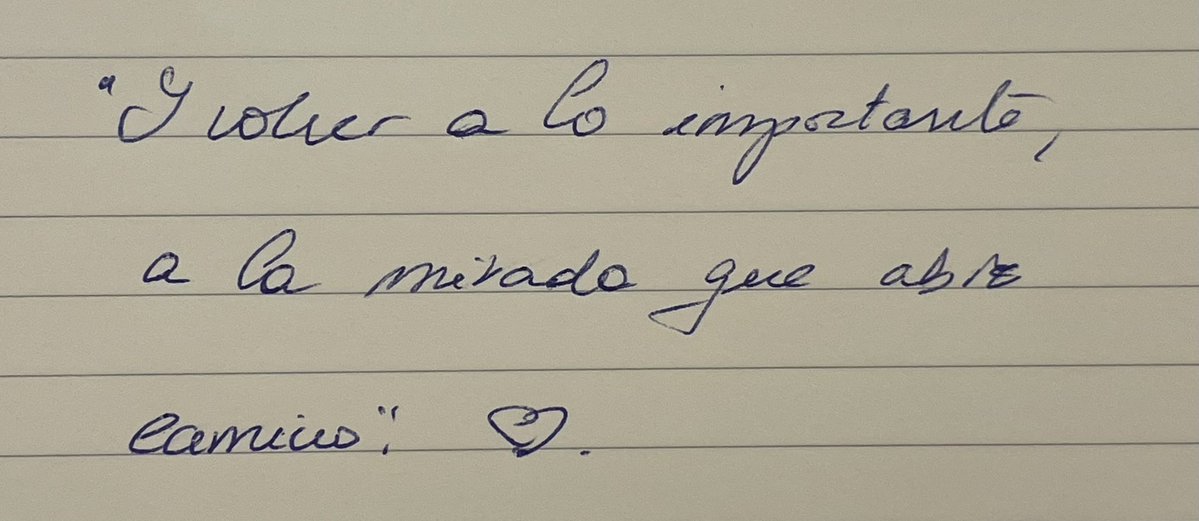 "Y volver a lo importante,
a la mirada que abre
camino". ♡.